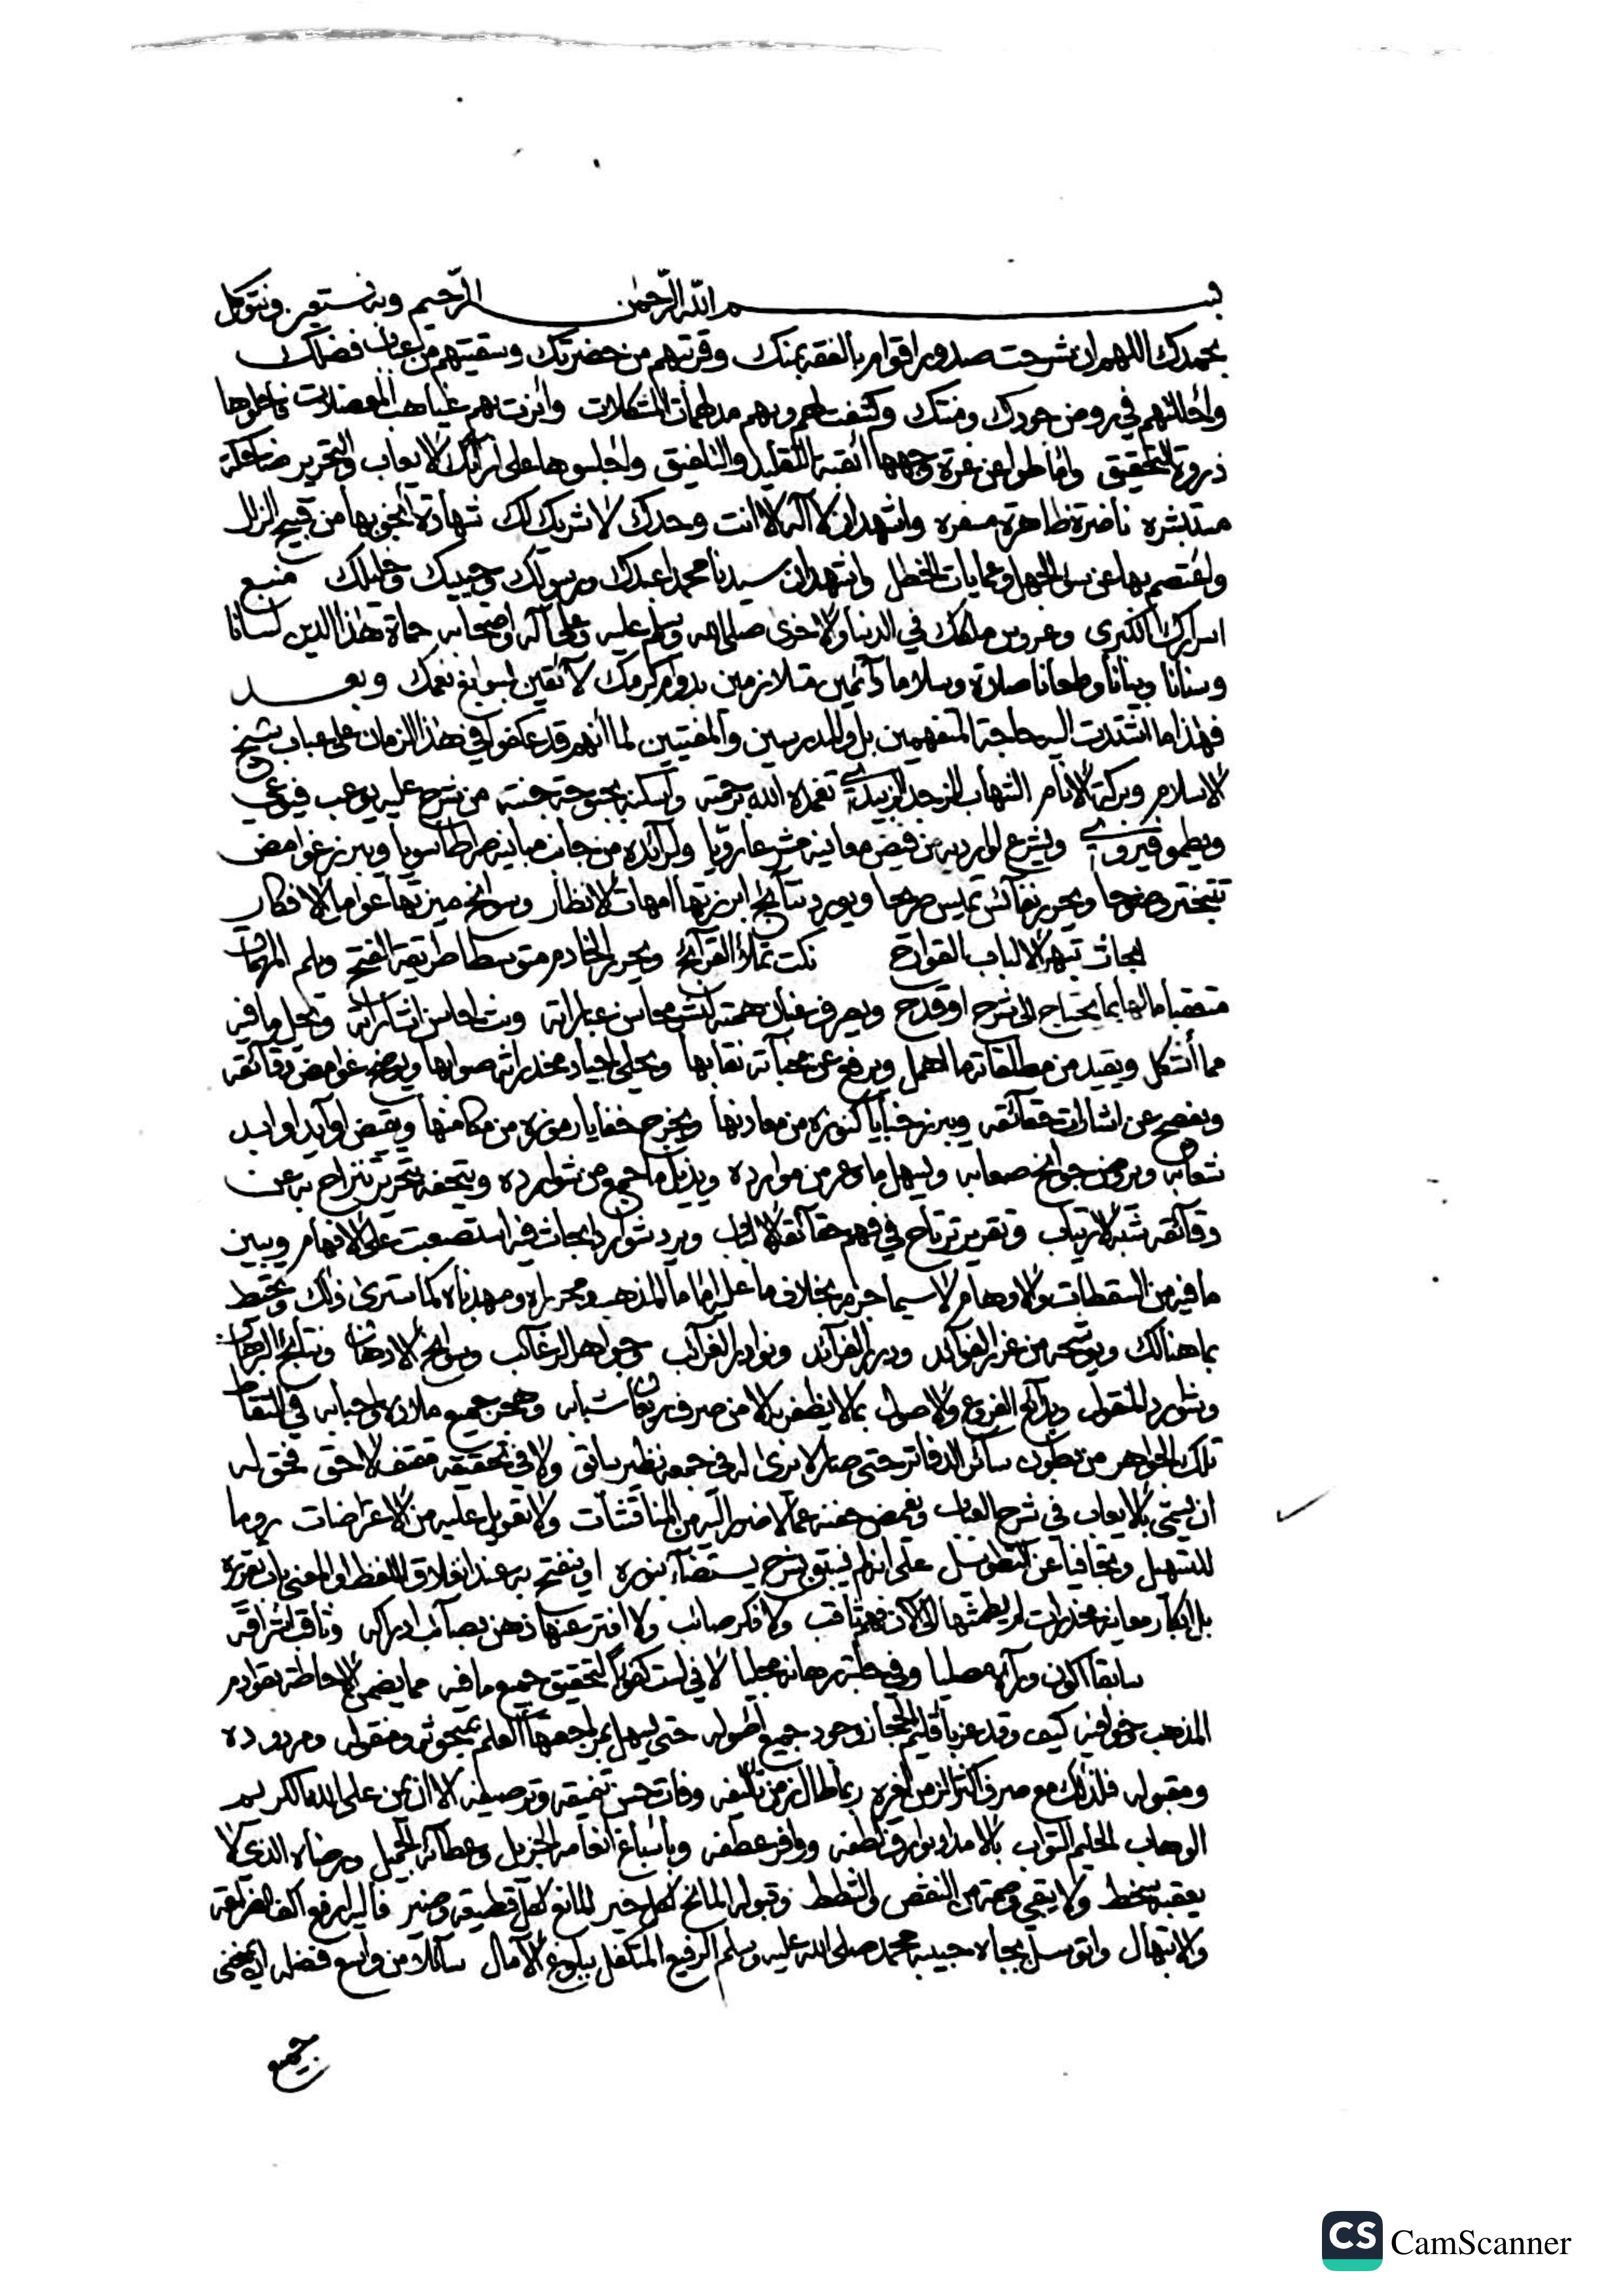 بسم الله الرحمن الرحيم وبه نستعين ونتوكل
نحمدك اللهم ان شرحت صدور اقوام بالفقه بمنك وقربتهم من حضرتك وسقيتهم من عباب فضلك
واحللتهم في روض جودك ومنتك وكشفت لهم وبهم مدلهمات المشكلات وانرت بهم غياهب المعضلات فاحلوها
ذروة التحقيق واماطوا عن غرة وجهها انقبة التقليد والتلفيق واجلسوها على ارائك الايعاب والتحرير ضاحكة
مستبشره ناضرة ظاهرة مسفره واشهد ان لا اله الا انت وحدك لا شريك لك شهادة انجو بها من قبيح الزلل
واعتصم بها عن سوء الجهل وعمايات الخطل واشهد ان سيدنا محمدا عبدك ورسولك وحبيبك وخليلك منبع
اسرارك الكبرى وعروس ملكك في الدنيا والاخرى صلى الله وسلم عليه وعلى آله واصحابه حماة هذا الدين لسانا
وسنانا وبنانا وطعانا صلاة وسلاما دائمين متلازمين بدوام كرمك لائقين بسوابغ نعمك وبعد
فهذا ما اشتدت اليه حاجة المتفهمين بل والمدرسين والمفتيين لما انهم قد عكفوا في هذا الزمان على عباب شيخ
الاسلام وبركة الانام الشهاب المزجد الزبيدي تغمده الله برحمته واسكنه بحبوحة جنته من شرح عليه يوعب فيوعي
ويطمو فيروي ويشرع لوارديه من فيض معانيه مشرعا رويا ولرائده من جانب مبانيه صراطا سويا ويبرز غوامض
تتبختر وضوحا ويحرر نفائس تميس مرحا ويورد نتائج ابرزتها امهات الانظار وسوانح ميزتها عوامل الافكار
ابحاث تبهر الالباب القوارح نكت تملأ القرائح ويحرر الخادم متوسطا طريقة الفتح ويلم المهمات
متعقبا مالها بما يحتاج الى شرح او قدح ويصرف عنان همته لنشر محاسن عباراته وبث احاسن اشاراته وتحل ما فيه
مما أشكل ويقيد من مطلقاته ما اهمل ويرفع عن مخبآته نقابها ويحلي اجياد مخدراته صوابها ويوضح غوامض دقائقه
ويفصح عن اشارات حقائقه ويبرز خبايا كنوزه من معادنها ويخرج خفايا رموزه من مكامنها ويقتض اوابد اوابد
شعابه ويروض جوامح صعابه ويسهل ما وعر من موارده ويذيل ما جمح من شوارده ويتحفه بتحرير تنزاح به عن
دقائقه شبه الارتياب وتقرير ترتاح في فهم حقائقه الالباب ويرد شوارد ابحاث فيه استصعبت على الافهام ويبين
ما فيه من السقطات والاوهام لا سيما جزمه بخلاف ما عليه اماما المذهب ومحرراه ومهذباه كما سترى ذلك وتحيط
بما هنالك ويوشحه من غرر الفوائد ودرر الفرائد ونوادر الغرائب وجواهر الرغائب وسوانح الاذهان ونتائج البرهان
وشوارد المنقول وبدائع الفروع والاصول بما لا يظفر به الا من صرف ريعان شبابه وهجر جميع ملاذه واحبابه في التقاط
تلك الجواهر من بطون سائر الدفاتر حتى صار لا يرى له في جمعه نظير سابق ولا في تحقيقه مقتف لاحق فحق له
ان يسمى بالايعاب في شرح العباب ويغمض جفنه عما لا ضرر اليه من المناقشات ولا تعويل عليه من الاعتراضات روما
للتسهيل وتجافيا عن التطويل على انه لم يسبق بشرح يستضاء بنوره او ينفتح به عند انغلاق اللفظ او المعنى باب تقريره
بل ابكار معانيه مخدرات لم يطمثها الى الآن فهم ثاقب ولا فكر صائب ولا افتر عنها ذهن بصائب ادراكه وثاقب اشراقه
سابقا اكون وراءه مصليا وفي حلبة رهانه مجليا لاني لست كفؤا لتحقيق جميع ما فيه مما يضمن الاحاطة بقوادم
المذهب وخوافيه كيف وقد عز باقليم الحجاز وجود جميع اصوله حتى يسهل بمراجعتها العلم بمبحوثه ومنقوله ومردوده
ومقبوله فلذلك مع صرف اكثر الزمن لغيره ربما طال زمن تأليفه وفات حسن تنميقه وترصيفه الا ان يمن علي الله الكريم
الوهاب الحليم التواب بالامداد بوارف لطفه ووافر عطفه وباسباغ انعامه الجزيل وعطائه الجميل ورضاه الذي لا
يعقبه سخط ولا يبقي وصمة من النقص والشطط وقبوله المانح لكل خير المانع لكل قطيعة وضير فاليه ارفع اكف الضراعة
والابتهال واتوسل بجاه حبيبه محمد صلى الله عليه وسلم الرفيع المتكفل ببلوغ الآمال سائلا من واسع فضله ان يمنحني
جميع
CS CamScanner